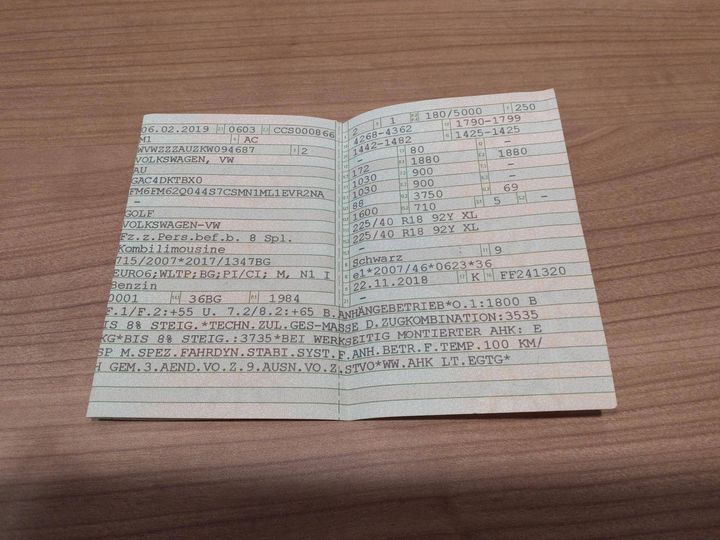 06.02.2019 0603 CCS000866
M1 AC
WVWZZZAUZKW094687 2
VOLKSWAGEN, VW
AU
GAC4DKTBX0
FM6FM62Q044S7CSMN1ML1EVR2NA
-
GOLF
VOLKSWAGEN-VW
Fz.z.Pers.bef.b. 8 Spl.
Kombilimousine
715/2007*2017/1347BG
EURO6;WLTP;BG;PI/CI; M, N1 I
Benzin
0001 36BG 1984
2 1 180/5000 250
4268-4362 1790-1799
1442-1482 1425-1425
- 80 -
172 1880 1880
1030 900 -
1030 900 -
88 3750 69
1600 710 5 -
225/40 R18 92Y XL
225/40 R18 92Y XL
- -
Schwarz 9
e1*2007/46*0623*36
22.11.2018 K FF241320
-
F.1/F.2:+55 U. 7.2/8.2:+65 B.ANHÄNGEBETRIEB*O.1:1800 B
IS 8% STEIG.*TECHN.ZUL.GES-MASSE D.ZUGKOMBINATION:3535
KG*BIS 8% STEIG.:3735*BEI WERKSEITIG MONTIERTER AHK: E
SP M.SPEZ.FAHRDYN.STABI.SYST.F.ANH.BETR.F.TEMP.100 KM/
H GEM.3.AEND.VO.Z.9.AUSN.VO.Z.STVO*WW.AHK LT.EGTG*